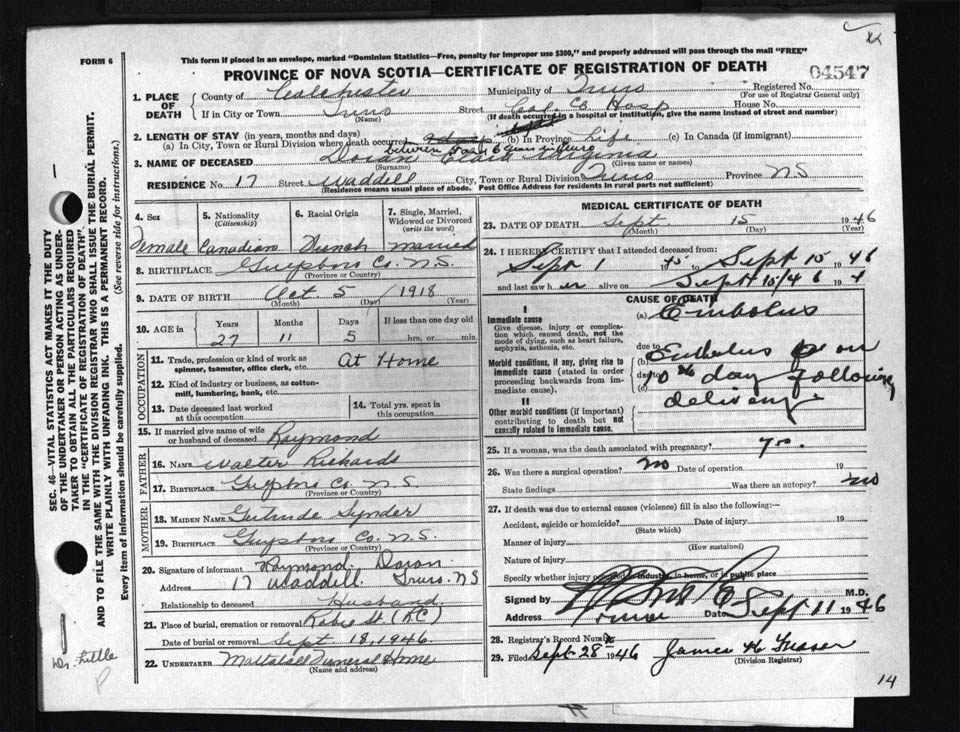 This form if placed in an envelope, marked "Dominion Statistics—Free, penalty for improper use $300," and properly addressed will pass through the mail "FREE"
FORM 6
PROVINCE OF NOVA SCOTIA—CERTIFICATE OF REGISTRATION OF DEATH
04547
1. PLACE OF DEATH
County of Colchester Municipality of Truro Registered No.
(For use of Registrar General only)
If in City or Town Truro Street Col. Co. Hosp House No.
(Name) (If death occurred in a hospital or institution, give the name instead of street and number)
2. LENGTH OF STAY (in years, months and days)
(a) In City, Town or Rural Division where death occurred (b) In Province Life (c) In Canada (if immigrant)
between 5 and 6 years in Truro
3. NAME OF DECEASED Doran Virginia
(Surname) (Given name or names)
RESIDENCE No. 17 Street Waddell City, Town or Rural Division Truro Province NS
(Residence means usual place of abode. Post Office Address for residents in rural parts not sufficient)
4. Sex
Female
5. Nationality
(Citizenship)
Canadian
6. Racial Origin
French
7. Single, Married, Widowed or Divorced
(write the word)
married
8. BIRTHPLACE Guysboro Co. N.S.
(Province or Country)
9. DATE OF BIRTH Oct. 5 / 1918
(Month) (Day) (Year)
10. AGE in
Years Months Days If less than one day old
27 11 5 hrs. or min.
OCCUPATION
11. Trade, profession or kind of work as spinner, teamster, office clerk, etc. At Home
12. Kind of industry or business, as cotton-mill, lumbering, bank, etc.
13. Date deceased last worked at this occupation
14. Total yrs. spent in this occupation
15. If married give name of wife or husband of deceased Raymond
FATHER
16. NAME Walter Richards
17. BIRTHPLACE Guysboro Co. N.S.
(Province or Country)
MOTHER
18. MAIDEN NAME Gertrude Synder
19. BIRTHPLACE Guysboro Co. N.S.
(Province or Country)
20. Signature of informant Raymond Doran
Address 17 Waddell Truro. NS
Relationship to deceased Husband
21. Place of burial, cremation or removal Robie St. (RC)
Date of burial or removal Sept 18, 1946.
22. UNDERTAKER Mattatall Funeral Home
(Name and address)
MEDICAL CERTIFICATE OF DEATH
23. DATE OF DEATH Sept. 15 1946
(Month) (Day) (Year)
24. I HEREBY CERTIFY that I attended deceased from:
Sept 1 to Sept 15 1946
and last saw her alive on Sept 15/46 19
CAUSE OF DEATH
I
Immediate cause
Give disease, injury or complication which caused death, not the mode of dying, such as heart failure, asphyxia, asthenia, etc.
(a) Embolus
due to
Morbid conditions, if any, giving rise to immediate cause (stated in order proceeding backwards from immediate cause).
(b) Embolus on
due to
(c) 10th day following
delivery
II
Other morbid conditions (if important) contributing to death but not causally related to immediate cause.
25. If a woman, was the death associated with pregnancy? Yes.
26. Was there a surgical operation? no Date of operation 19
State findings Was there an autopsy? no
27. If death was due to external causes (violence) fill in also the following:—
Accident, suicide or homicide? Date of injury 19
(State which)
Manner of injury
(How sustained)
Nature of injury
Specify whether injury occurred in industry, in home, or in public place
Signed by M.D.
Address Truro Date Sept 11 1946
28. Registrar's Record Number
29. Filed Sept 28 1946 James H Fraser
(Division Registrar)
14
SEC. 46—VITAL STATISTICS ACT MAKES IT THE DUTY
OF THE UNDERTAKER OR PERSON ACTING AS UNDER-
TAKER TO OBTAIN ALL THE PARTICULARS REQUIRED
IN THE "CERTIFICATE OF REGISTRATION OF DEATH",
AND TO FILE THE SAME WITH THE DIVISION REGISTRAR WHO SHALL ISSUE THE BURIAL PERMIT.
WRITE PLAINLY WITH UNFADING INK. THIS IS A PERMANENT RECORD.
Every item of information should be carefully supplied. (See reverse side for instructions.)
Dr. Little